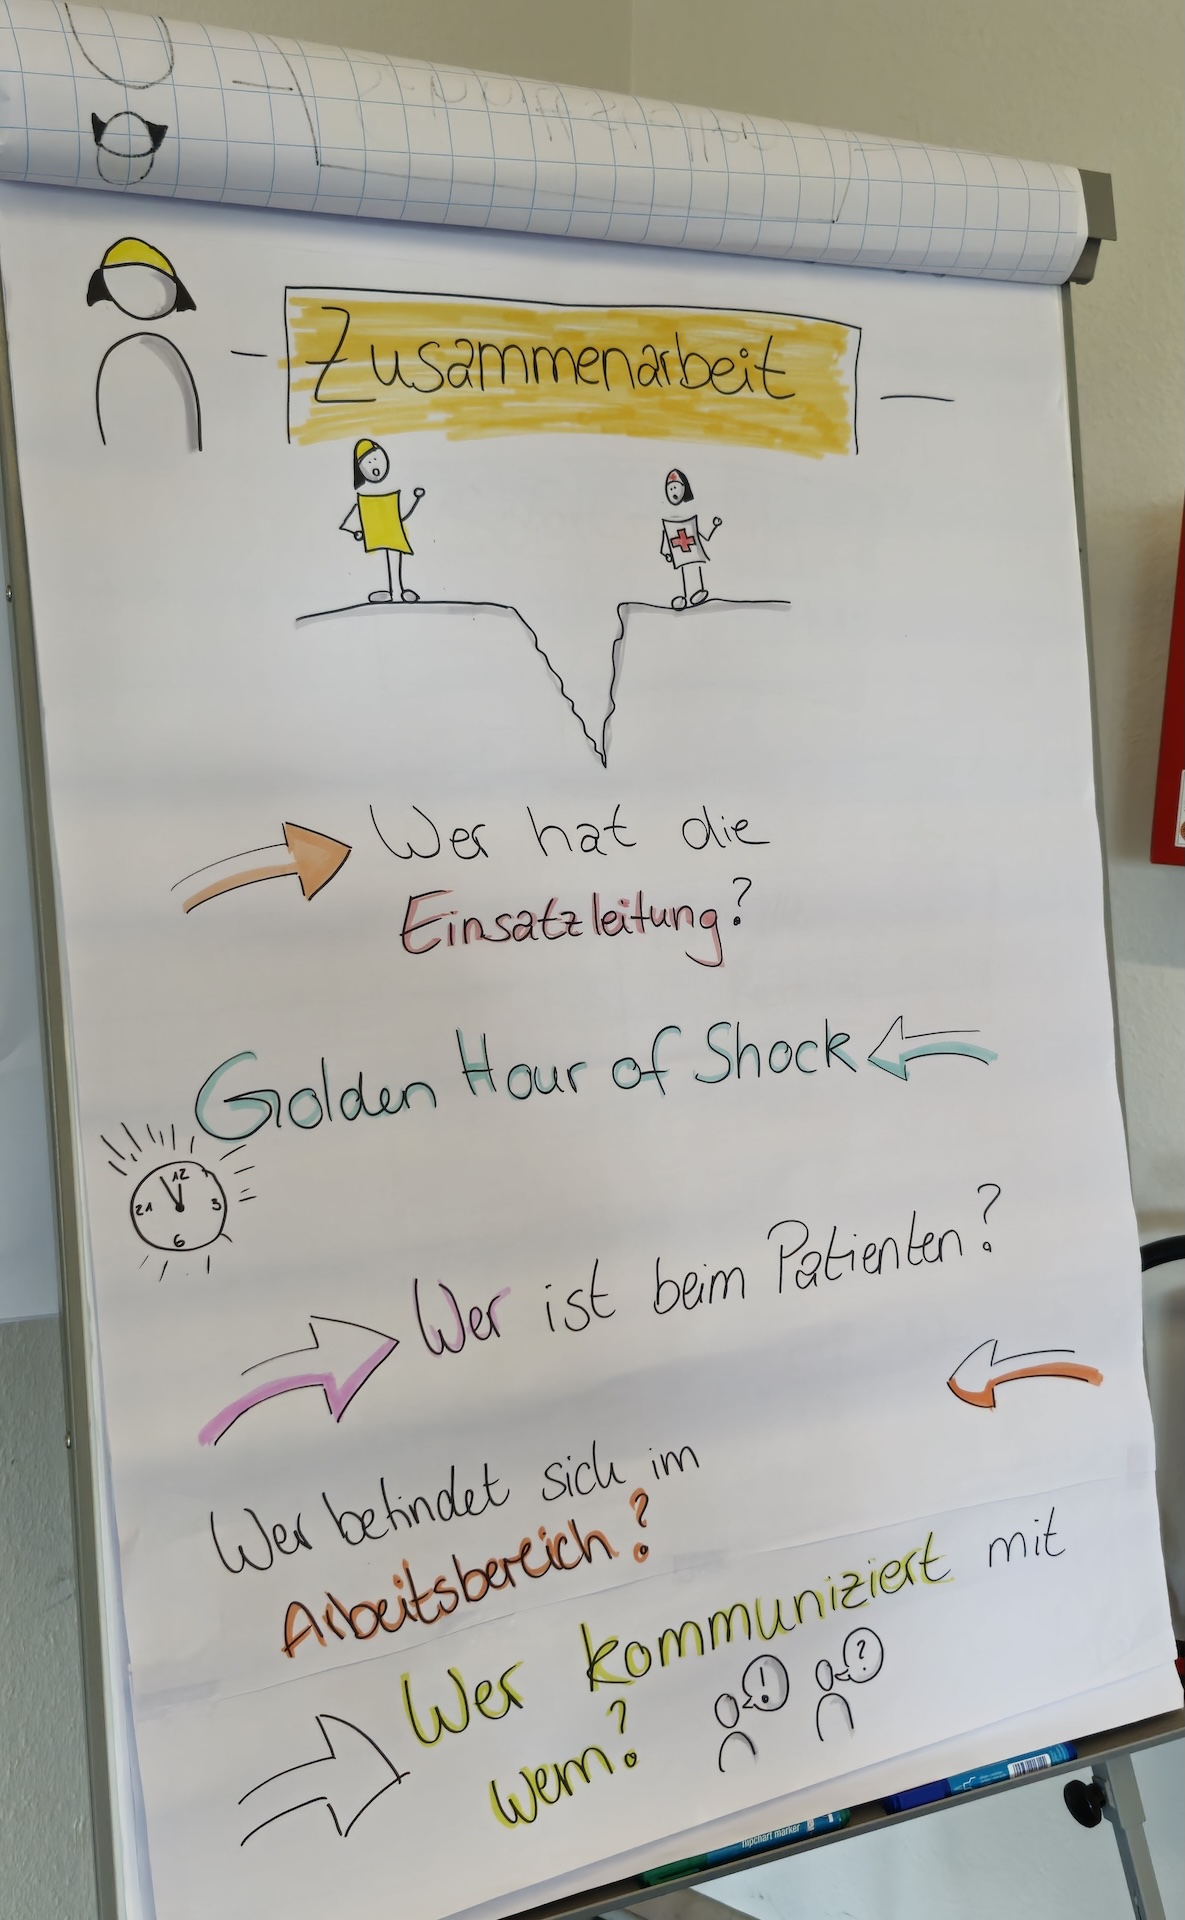 Zusammenarbeit
Wer hat die
Einsatzleitung?
Golden Hour of Shock
12
21 3
6
Wer ist beim Patienten?
Wer befindet sich im
Arbeitsbereich?
Wer kommuniziert mit
wem?
! ?
flipchart marker